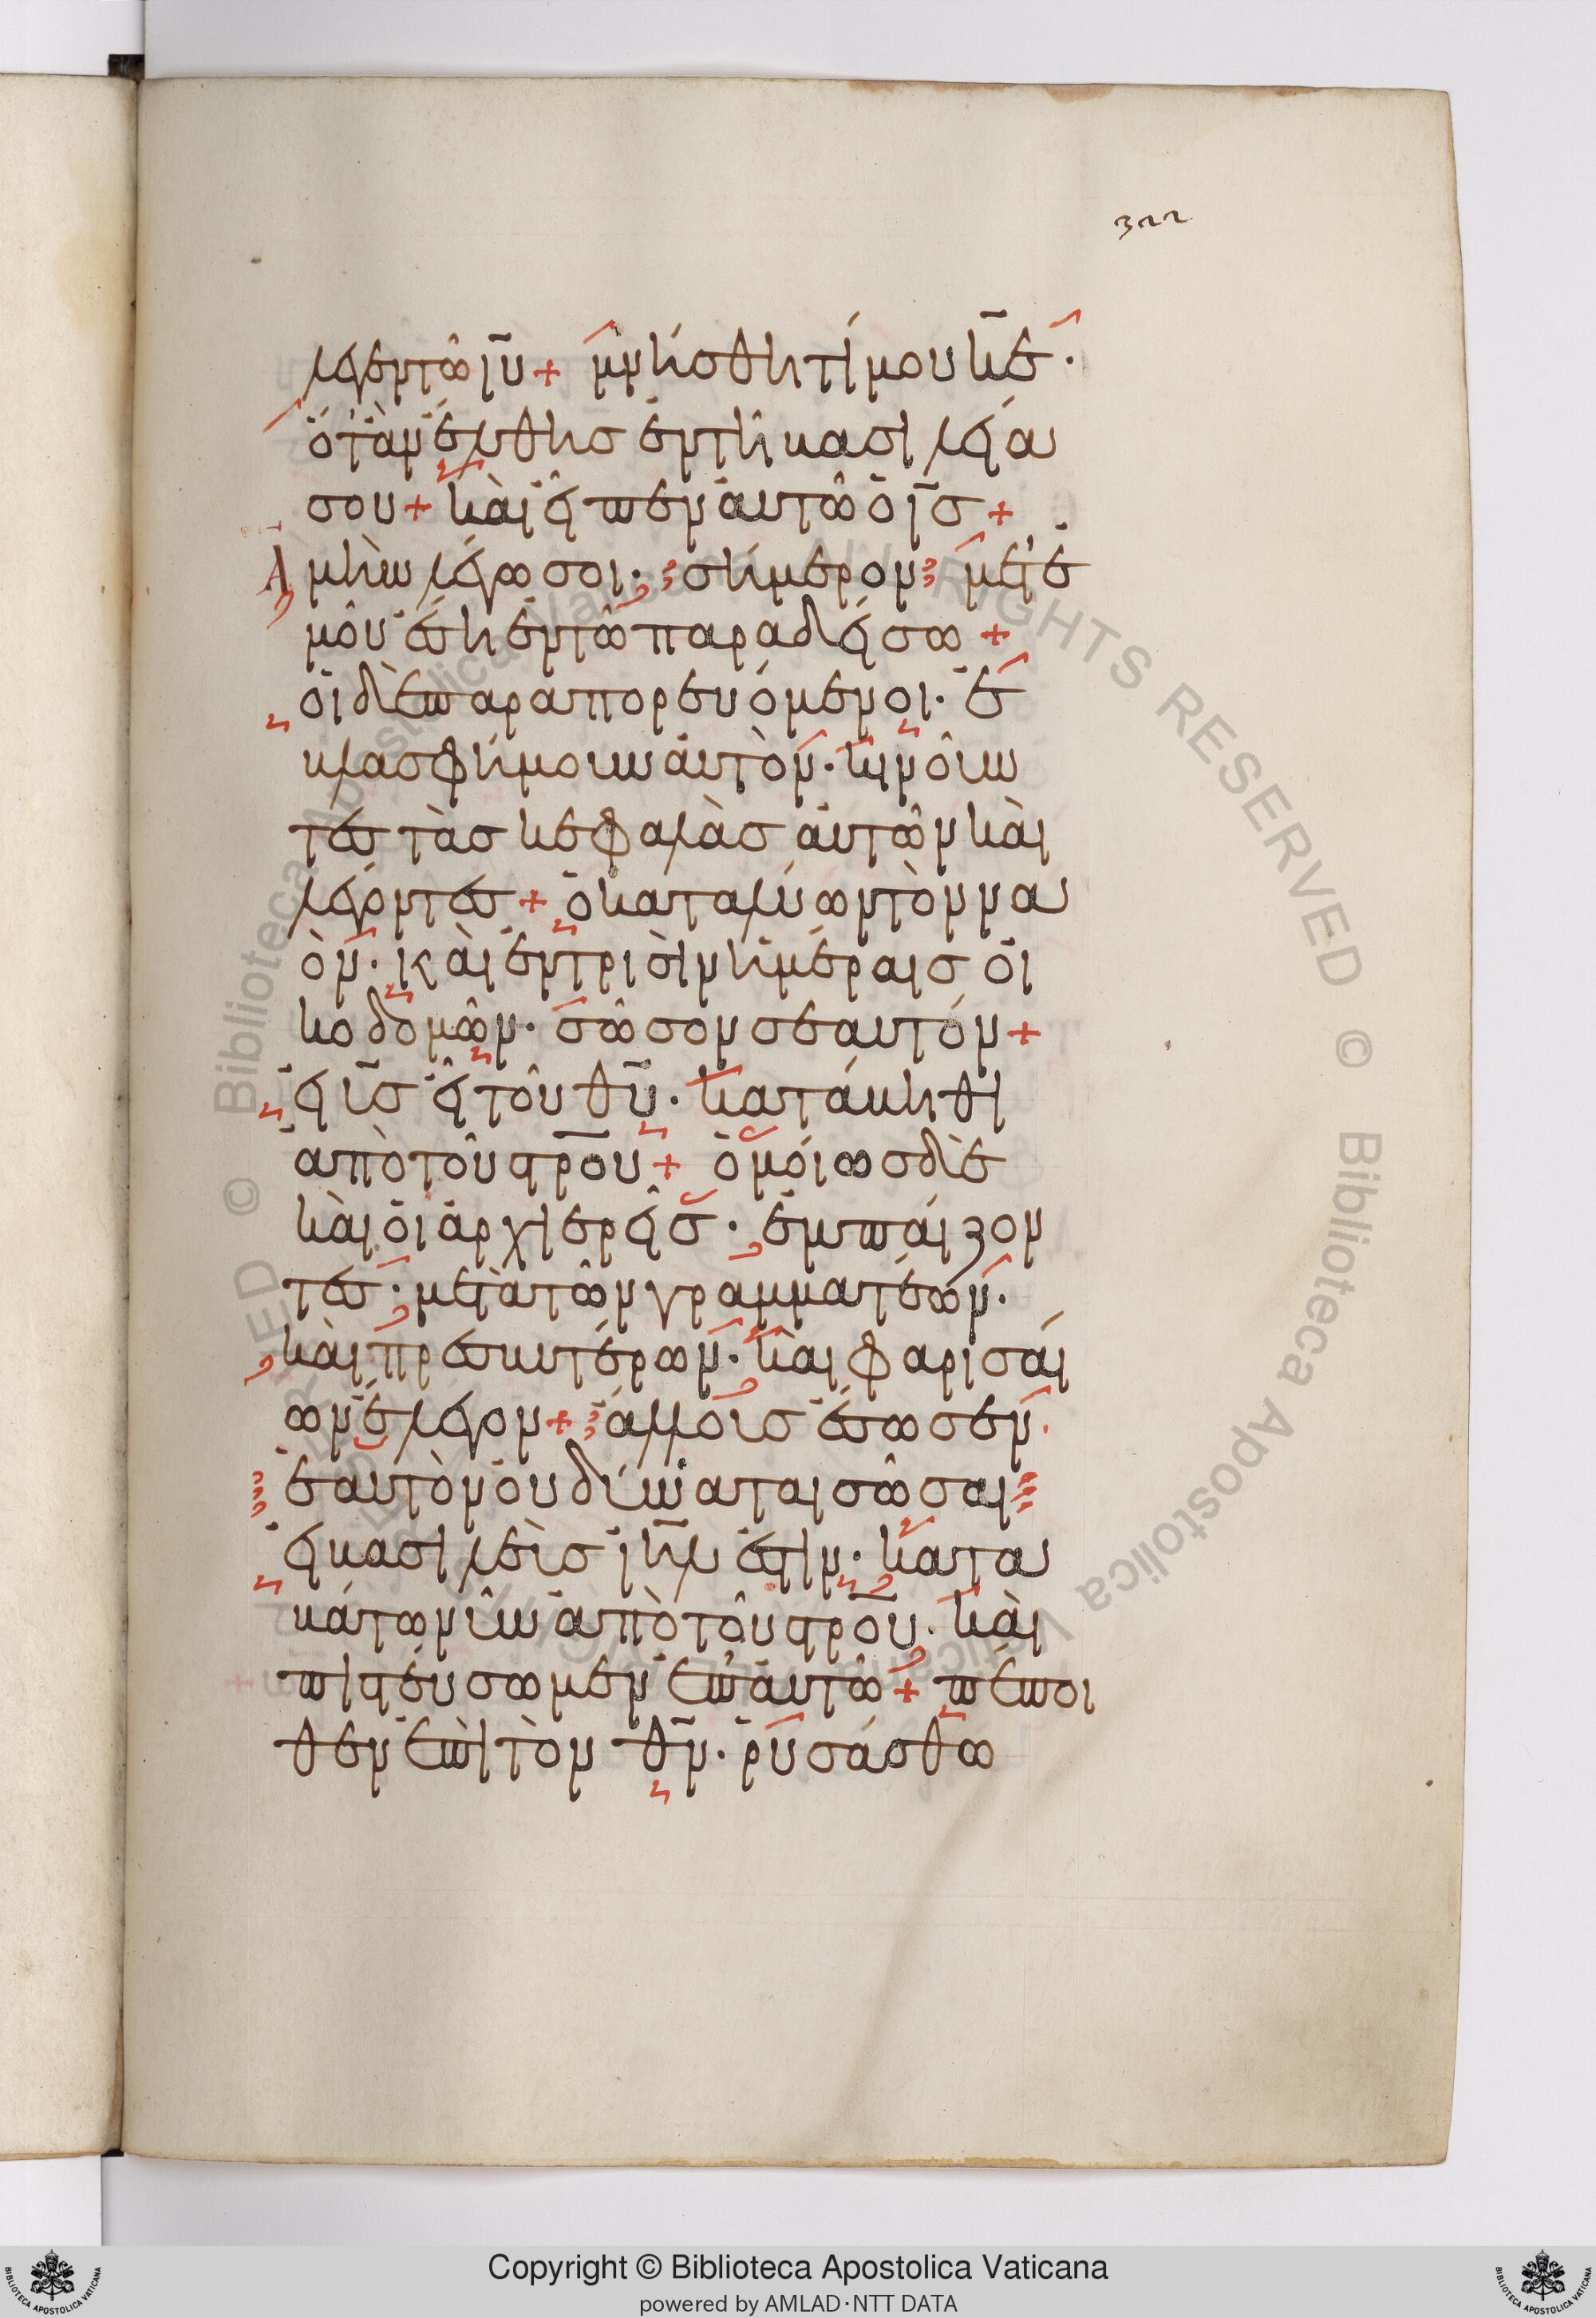 322
λεγεν τῶ ἰῦ + μνήσθητί μου κε̄·
ὅταν ἔλθησ ἐν τῆ βασιλεία
σου + καὶ εἶπεν αὐτῶ ὁ ἰ̄σ +
Ἀμὴν λέγω σοι· σήμερον μετ' ἐ
μοῦ ἔση ἐν τῶ παραδείσω +
οἱ δὲ παραπορευόμενοι· ἐ
βλασφήμουν αὐτὸν· κινοῦν
τεσ τὰσ κεφαλὰσ αὐτῶν καὶ
λέγοντεσ + ὁ καταλύων τὸν να
ὸν· καὶ ἐν τρισὶν ἡμέραισ οἰ
κοδομῶν· σῶσον σεαυτόν +
εἰ ῡσ εἶ τοῦ θῡ· κατάβηθι
ἀπὸ τοῦ στρ̄ου + ὁμοίωσ δὲ
καὶ οἱ ἀρχιερεῖσ· ἐμπαίζον
τεσ· μετὰ τῶν γραμματέων·
καὶ πρεσβυτέρων· καὶ φαρισαί
ων ἔλεγον + ἄλλουσ ἔσωσεν·
ἑαυτὸν οὐ δύναται σῶσαι
εἰ βασιλεὺσ ἰη̄λ ἐστιν· κατα
βάτω νῦν ἀπὸ τοῦ στρ̄ου· καὶ
πιστεύσωμεν ἐπ' αὐτῶ + πέποι
θεν ἐπὶ τὸν θν̄· ῥυσάσθω
Copyright © Biblioteca Apostolica Vaticana
powered by AMLAD·NTT DATA